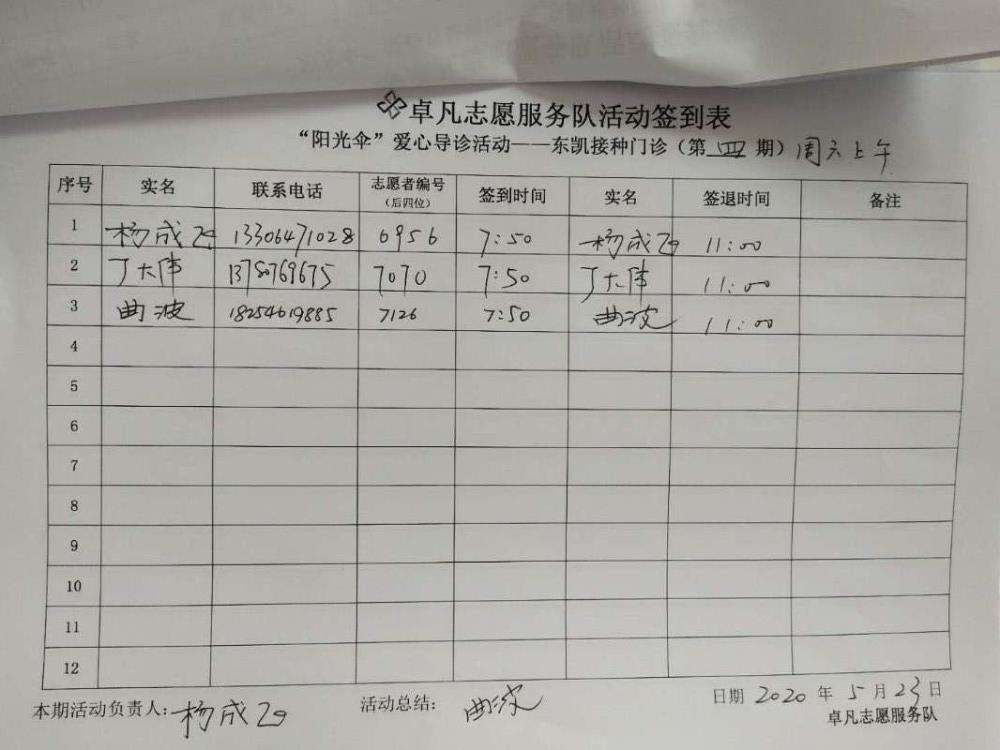 卓凡志愿服务队活动签到表
“阳光伞”爱心导诊活动——东凯接种门诊（第四期）周六上午
序号 实名 联系电话 志愿者编号（后四位） 签到时间 实名 签退时间 备注
1 杨成 13306471028 6956 7:50 杨成 11:00
2 丁大伟 7070 7:50 丁大伟 11:00
3 曲波 18254619885 7126 7:50 曲波 11:00
4
5
6
7
8
9
10
11
12
本期活动负责人：杨成 活动总结：曲波 日期 2020 年 5 月 23 日
卓凡志愿服务队